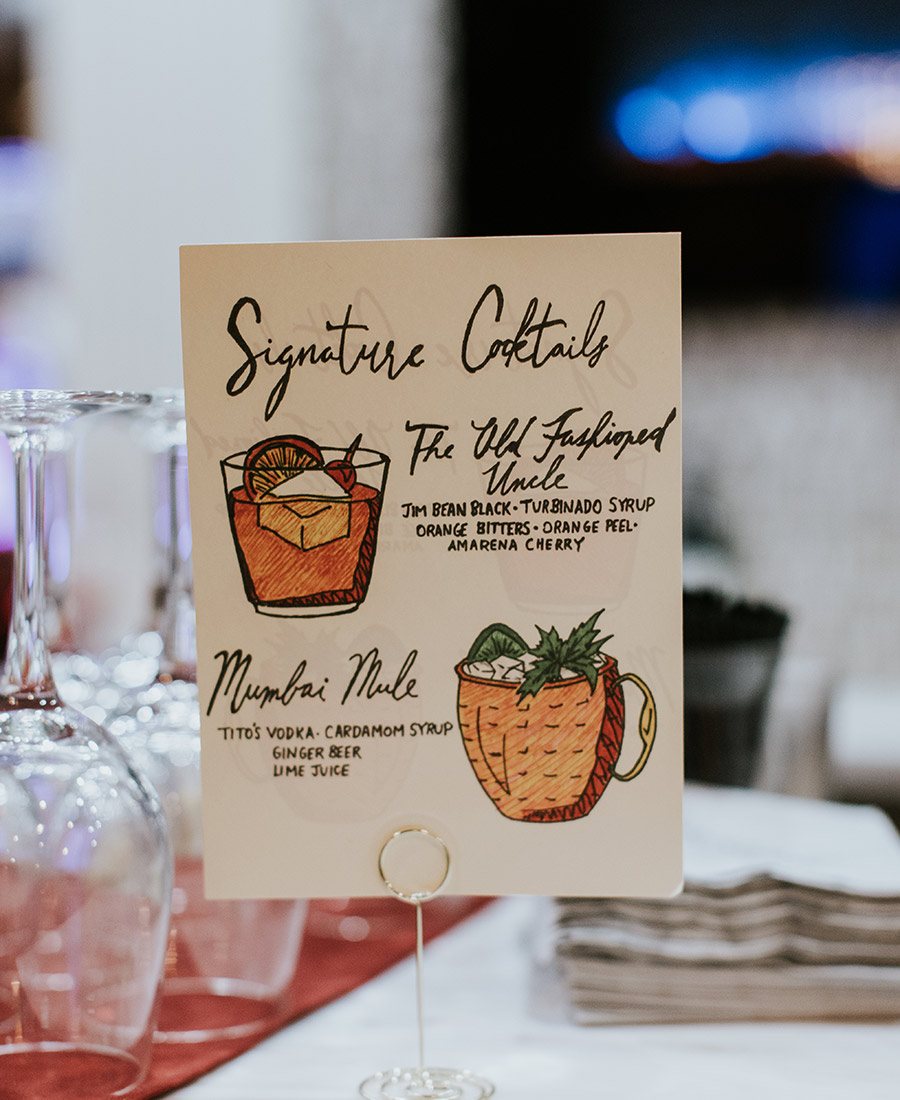 Signature Cocktails
The Old Fashioned
Uncle
JIM BEAN BLACK · TURBINADO SYRUP
ORANGE BITTERS · ORANGE PEEL ·
AMARENA CHERRY
Mumbai Mule
TITO'S VODKA · CARDAMOM SYRUP
GINGER BEER
LIME JUICE